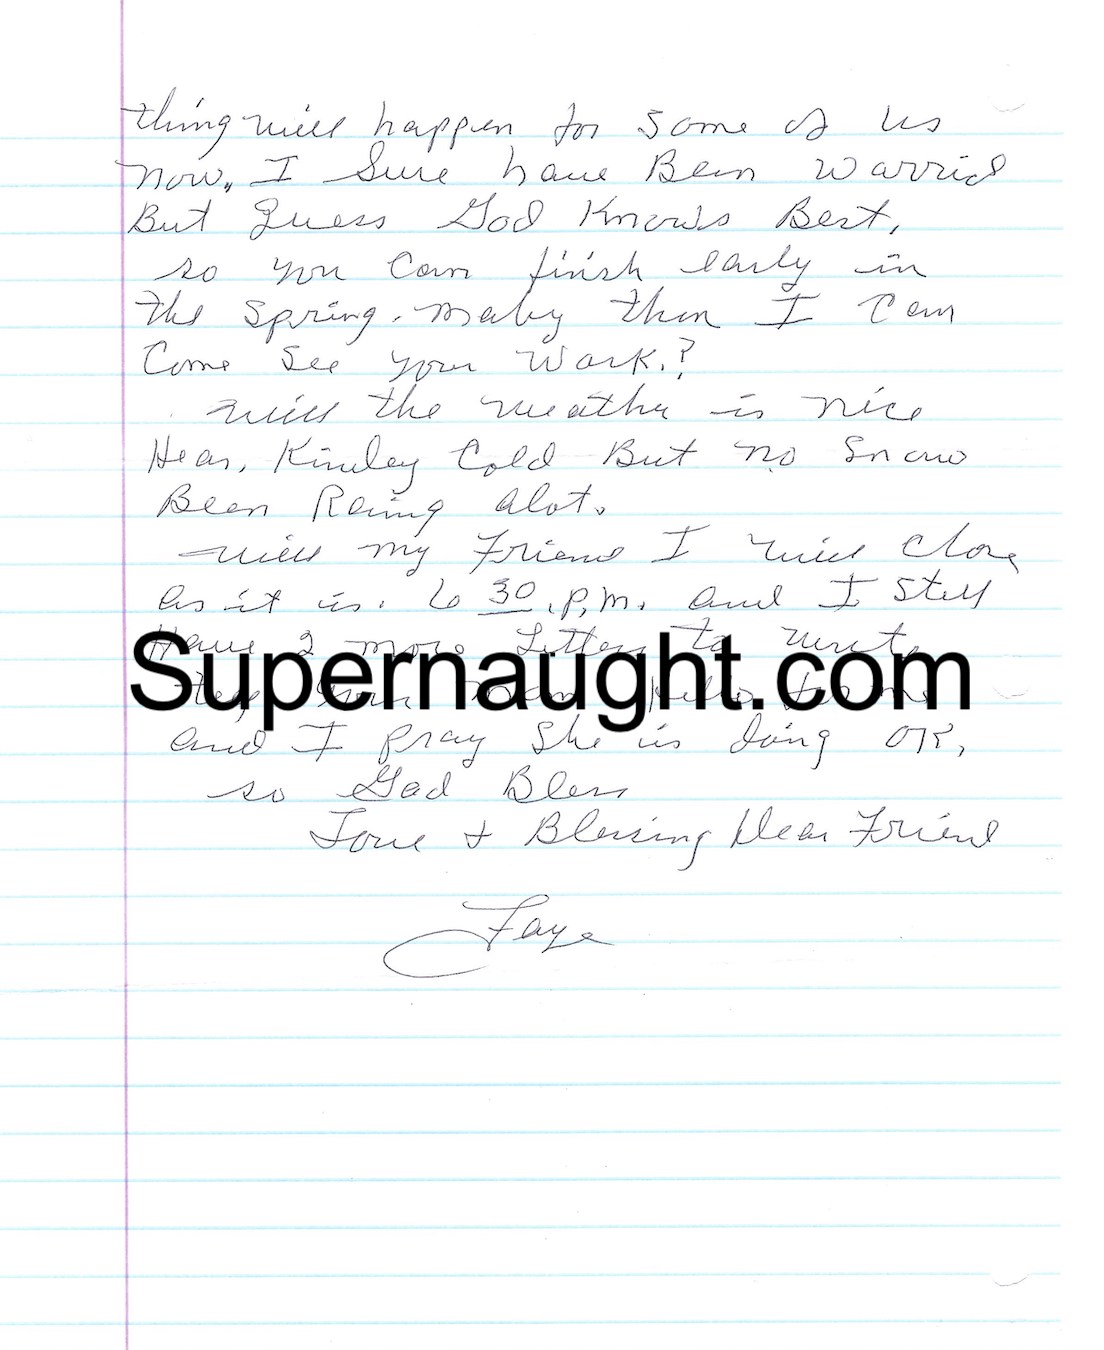 thing will happen for some of us
now,, I Sure have Been Warried
But guess God Knows Best,
so you Can finish early in
the spring. Maby then I Can
Come See your Work.?
Will the weather is nice
Hear, Kindey Cold But no Snow
Been Raing alot.
Will my Friend I will Close
as it is. 6 30 .P.M. and I Still
Have 2 more Letters to write
Supernaught.com
tell your mom Hello for me
and I Pray She is doing OK,
so God Bless
Love + Blessing Dear Friend
Faye